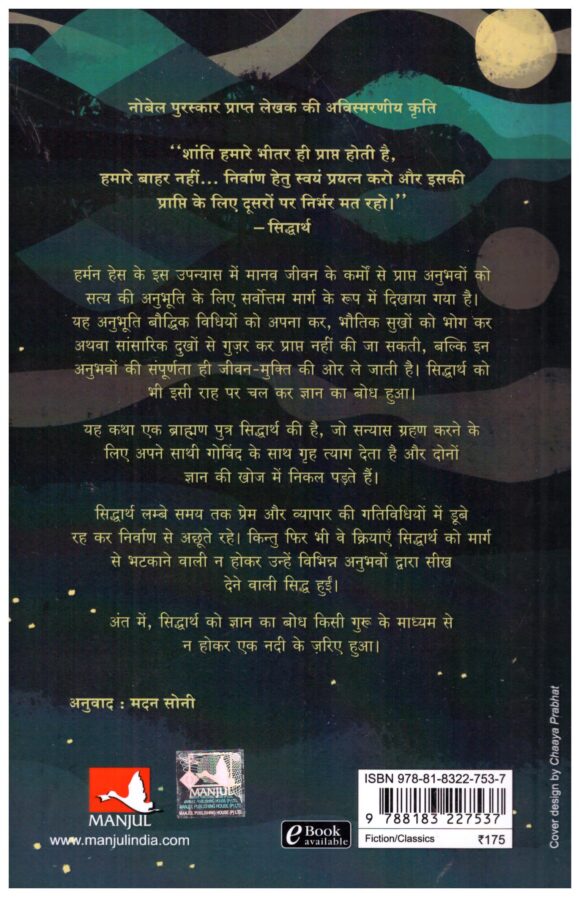 नोबेल पुरस्कार प्राप्त लेखक की अविस्मरणीय कृति
‘‘शांति हमारे भीतर ही प्राप्त होती है,
हमारे बाहर नहीं... निर्वाण हेतु स्वयं प्रयत्न करो और इसकी
प्राप्ति के लिए दूसरों पर निर्भर मत रहो।’’
–सिद्धार्थ
हर्मन हेस के इस उपन्यास में मानव जीवन के कर्मों से प्राप्त अनुभवों को
सत्य की अनुभूति के लिए सर्वोत्तम मार्ग के रूप में दिखाया गया है।
यह अनुभूति बौद्धिक विधियों को अपना कर, भौतिक सुखों को भोग कर
अथवा सांसारिक दुखों से गुज़र कर प्राप्त नहीं की जा सकती, बल्कि इन
अनुभवों की संपूर्णता ही जीवन-मुक्ति की ओर ले जाती है। सिद्धार्थ को
भी इसी राह पर चल कर ज्ञान का बोध हुआ।
यह कथा एक ब्राह्मण पुत्र सिद्धार्थ की है, जो सन्यास ग्रहण करने के
लिए अपने साथी गोविंद के साथ गृह त्याग देता है और दोनों
ज्ञान की खोज में निकल पड़ते हैं।
सिद्धार्थ लम्बे समय तक प्रेम और व्यापार की गतिविधियों में डूबे
रह कर निर्वाण से अछूते रहे। किन्तु फिर भी वे क्रियाएँ सिद्धार्थ को मार्ग
से भटकाने वाली न होकर उन्हें विभिन्न अनुभवों द्वारा सीख
देने वाली सिद्ध हुईं।
अंत में, सिद्धार्थ को ज्ञान का बोध किसी गुरू के माध्यम से
न होकर एक नदी के ज़रिए हुआ।
अनुवाद : मदन सोनी
MANJUL
www.manjulindia.com
MANJUL
MANJUL PUBLISHING HOUSE (P) LTD.
e Book
available
ISBN 978-81-8322-753-7
9 788183 227537
Fiction/Classics ₹175
Cover design by Chaaya Prabhat